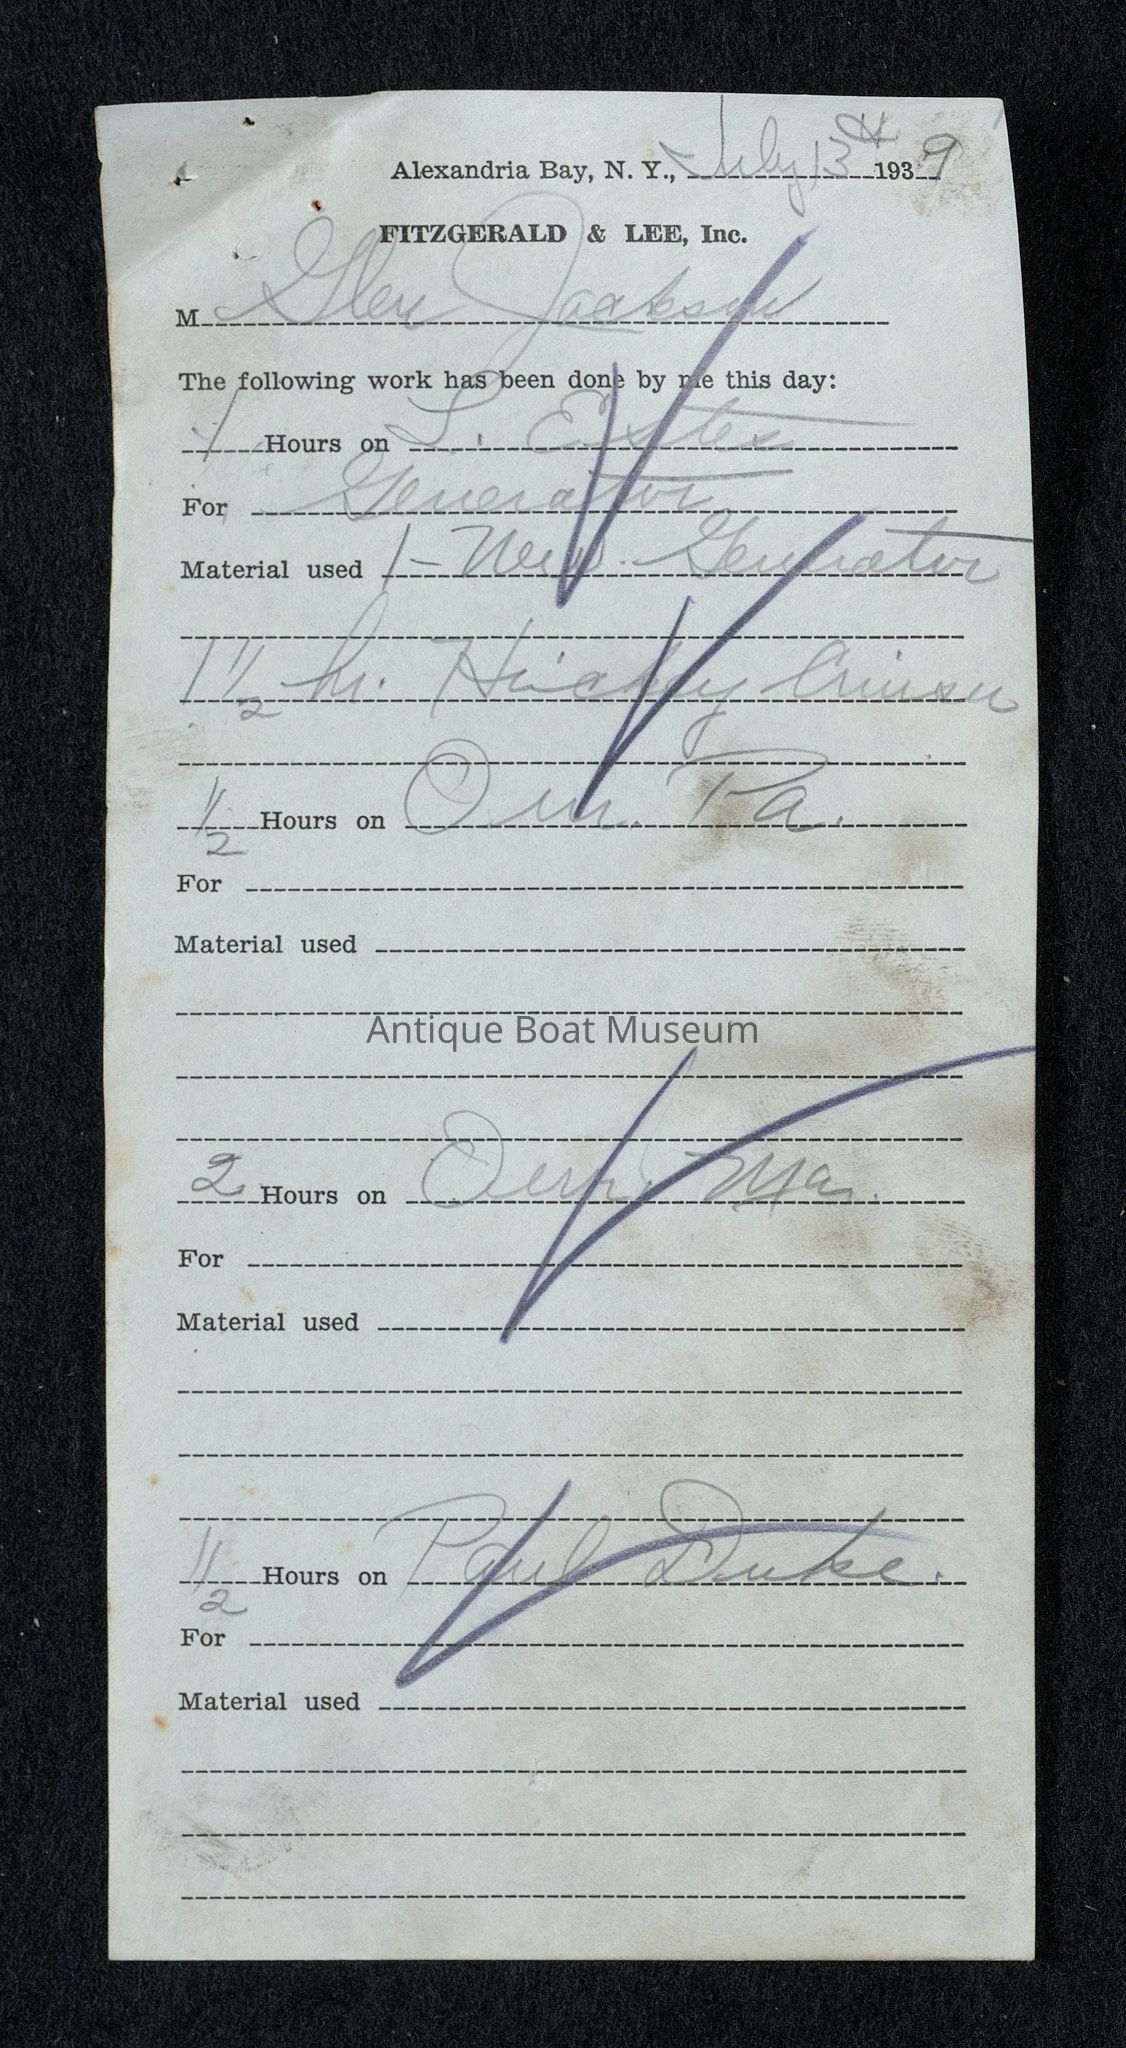 Alexandria Bay, N. Y., July 13th 1939
FITZGERALD & LEE, Inc.
M Glen Jackson
The following work has been done by me this day:
1 Hours on L. Estes
For Generator
Material used 1 - New Generator
1 1/2 hr. Hickey Cruiser
1/2 Hours on Pa.
For
Material used
Antique Boat Museum
2 Hours on
For
Material used
1/2 Hours on Paul Duke.
For
Material used